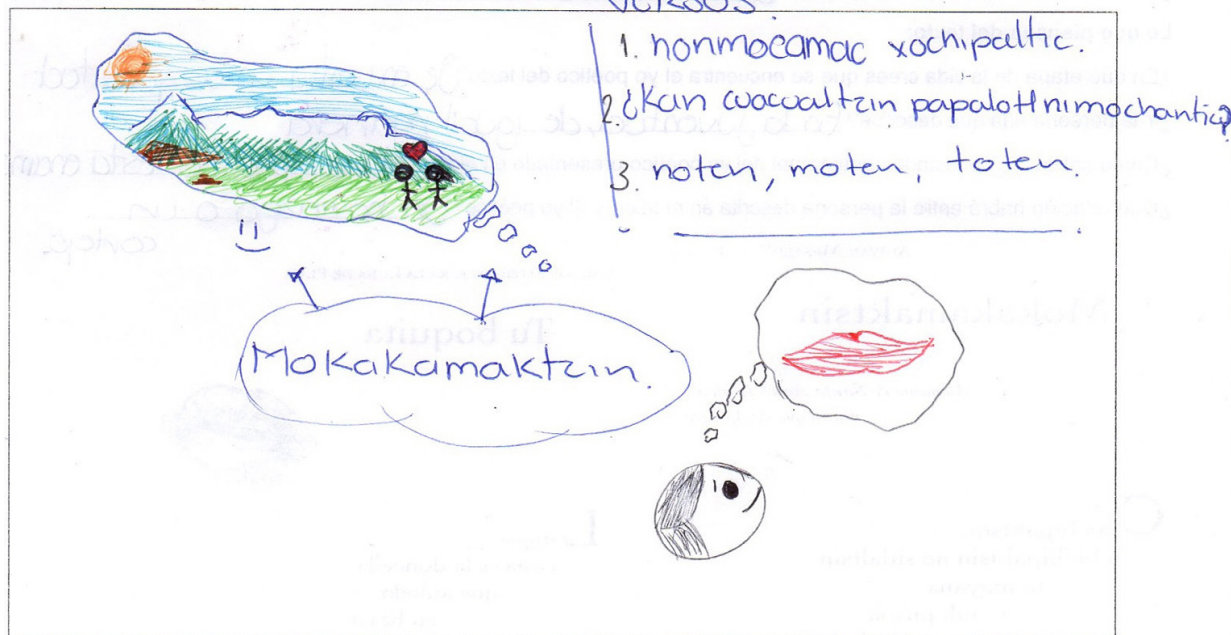 VERSOS.
1. nonmocamac xochipaltic.
2. ¿Kan cuacualtzin papalotl nimochantia?
3. noten, moten, toten.
Mokakamaktzin.